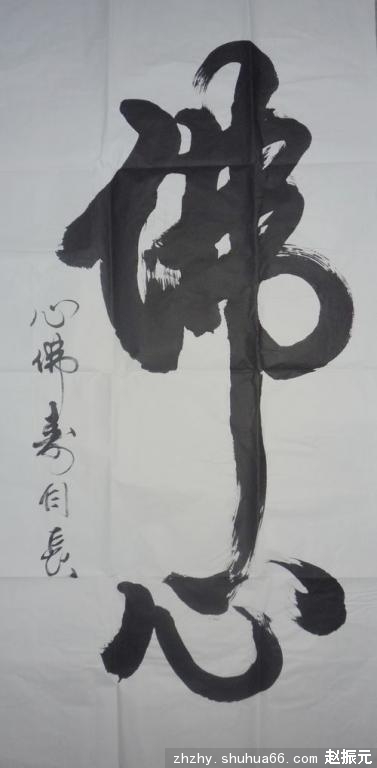 佛心
心佛寿自長
zhzhy.shuhua66.com 赵振元